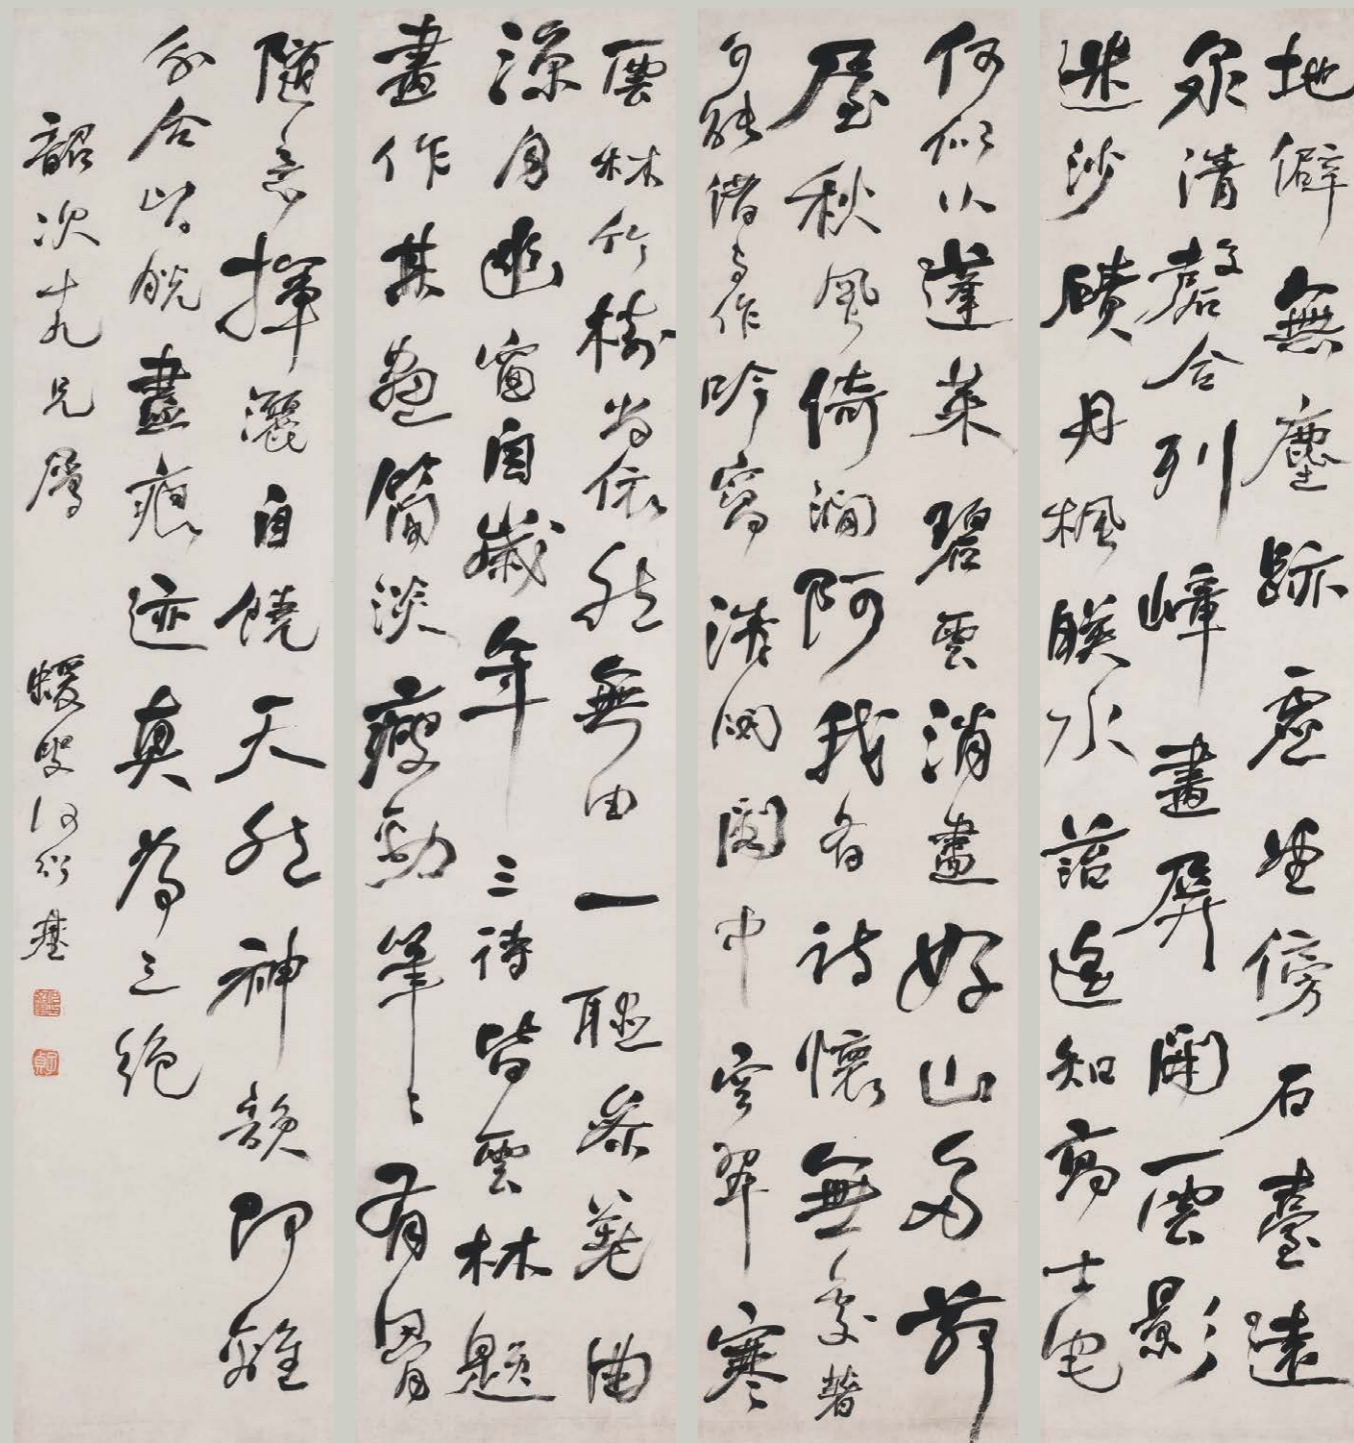 地僻無塵跡虛堂傍石臺遠
泉清磬合列嶂畫屏開雲影
迷沙磧丹楓映水遙知高士宅
何似小蓬萊碧雲消盡好山多茆
屋秋風倚澗阿我有詩懷無處著
可能借與作吟窩清閟閣中空翠寒
雲林竹樹尚依然無由一聽叅差曲
涼月幽窗自歲年三詩皆雲林題
畫作其畫簡淡瘦勁筆〻有骨
隨意揮灑自饒天然神韻即離
分合皆脫盡痕迹真為三絕
韶次十九兄屬
蝯叟何紹基